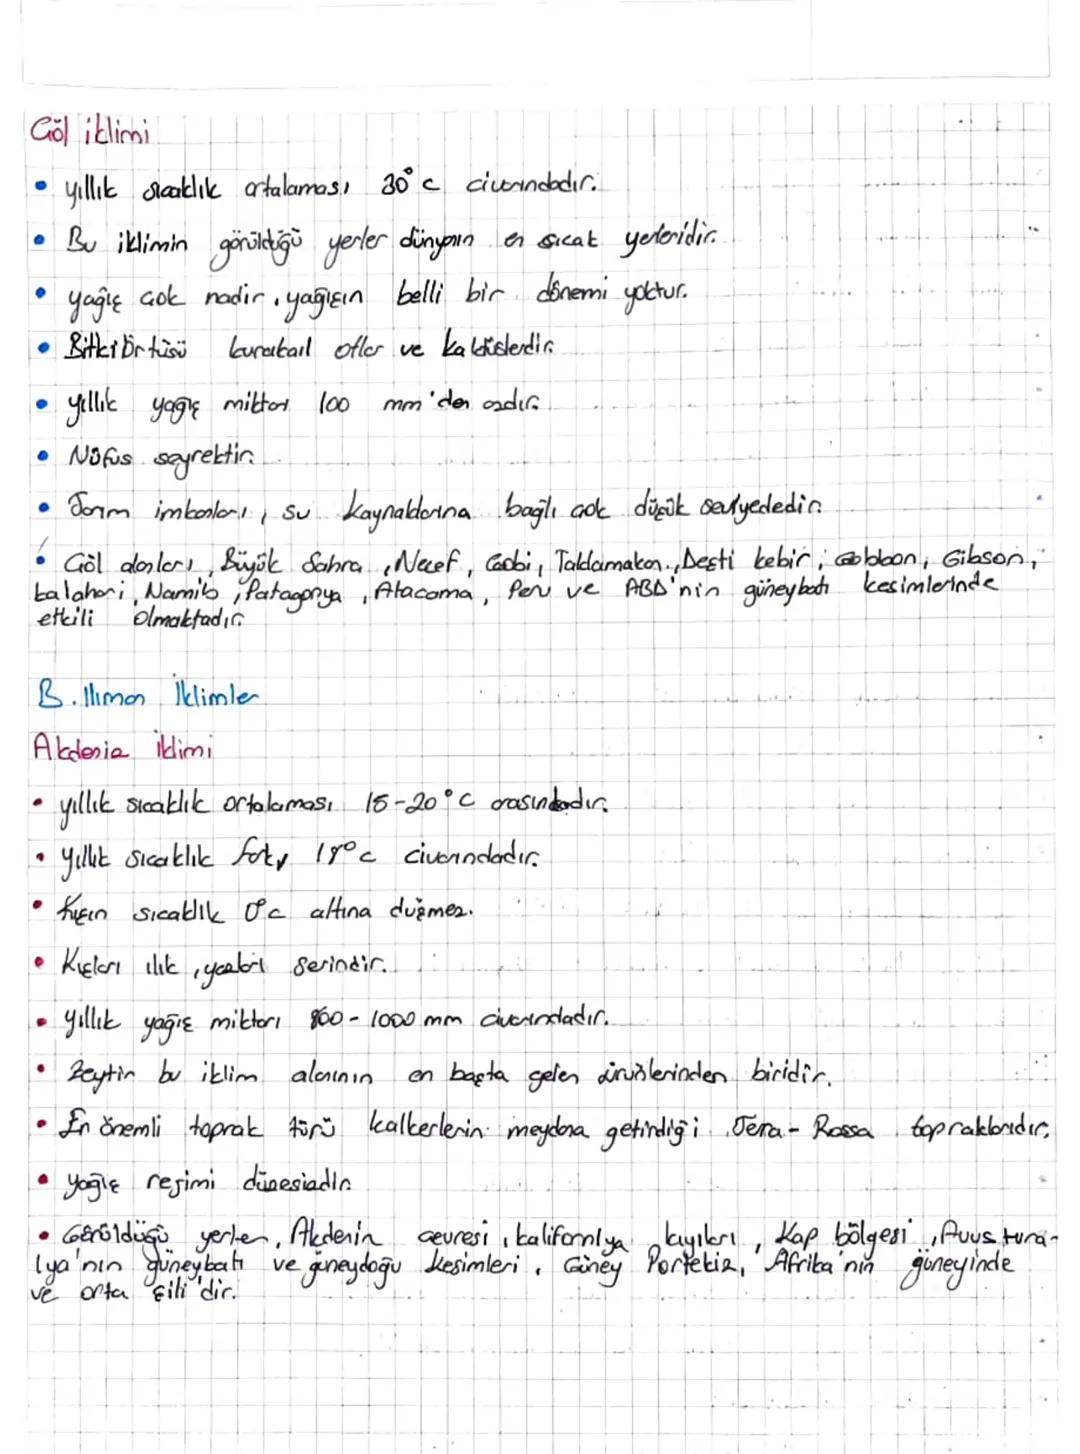 Çöl iklimi
• yıllık sıcaklık ortalaması 30°C civarındadır.
• Bu iklimin görüldüğü yerler dünyanın en sıcak yerleridir.
• yağış çok nadir, yağışın belli bir dönemi yoktur.
• Bitki Örtüsü kurakçıl otlar ve kaktüslerdir.
• yıllık yağış miktarı 100 mm'den azdır.
• Nüfus seyrektir.
• Tarım imkanları, su kaynaklarına bağlı çok düşük seviyededir.
• Çöl alanları, Büyük Sahra, Necef, Gobi, Taklamakan, Deşti kebir, Gibson,
kalahari, Namib, Patagonya, Atacama, Peru ve ABD'nin güneybatı kesimlerinde
etkili olmaktadır.
B. Ilıman İklimler
Akdeniz iklimi
• yıllık sıcaklık ortalaması 15-20°C arasındadır.
• yıllık sıcaklık farkı 18°C civarındadır.
• Kışın sıcaklık 0°C altına düşmez.
• Kışları ılık, yazları serindir.
• yıllık yağış miktarı 800-1000 mm civarındadır.
• Zeytin bu iklim alanının en başta gelen ürünlerinden biridir.
• En önemli toprak türü kalkerlerin meydana getirdiği Terra-Rossa topraklarıdır.
• yağış rejimi düzensizdir.
• Görüldüğü yerler, Akdenin çevresi, kaliforniya kıyıları, Kap bölgesi, Avustura-
lya'nın güneybatı ve güneydoğu kesimleri, Güney Portekiz, Afrika'nın güneyinde
ve orta şili'dir.